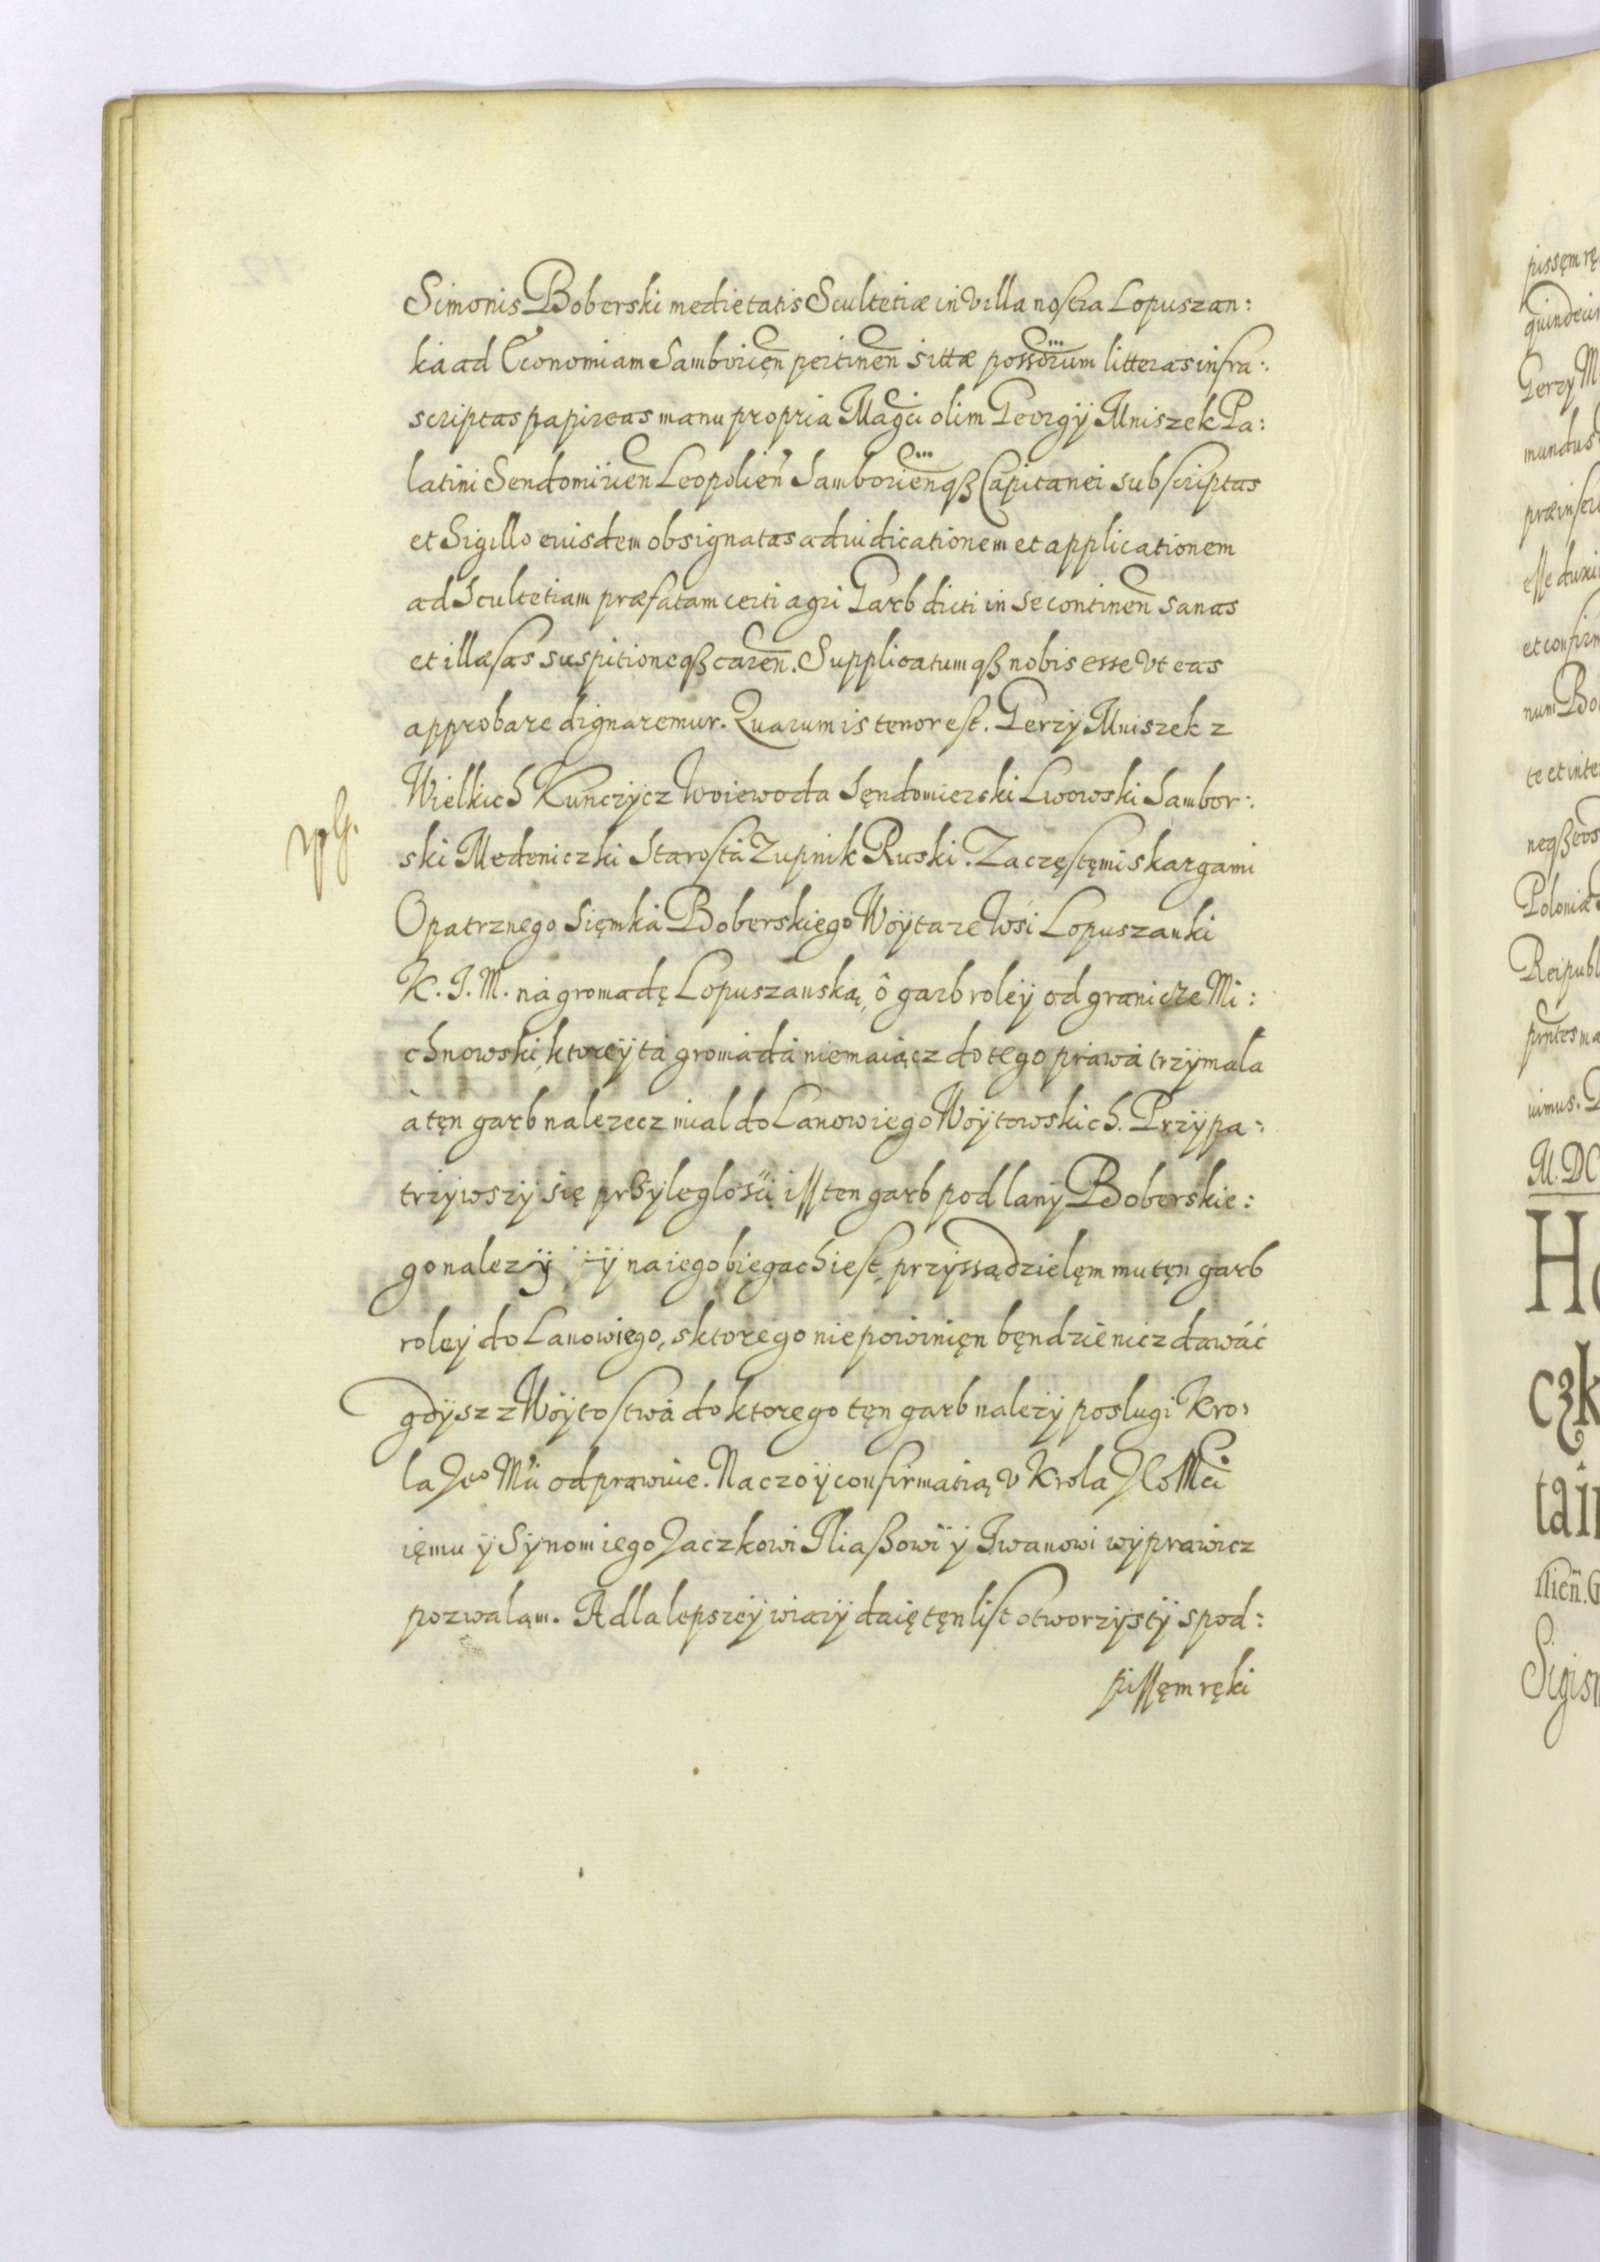 Simonis Boberski medietatis Scultetiæ in Villa nostra Lopuszan:
ka ad Œconomiam Samboricen̄ pertinen̄ sittæ possōrum litteras infra:
scriptas papireas manu propria Magci olim Georgÿ Mniszek Pa:
latini Sendomirien̄ Leopolien̄ Samborien̄qß Capitanei subscriptas
et Sigillo eiusdem obsignatas adiudicationem et applicationem
ad Scultetiam præfatam certi agri Garb dicti in se continen̄ sanas
et illæsas suspitioneqß caren̄. Supplicatumqß nobis esse vt eas
approbare dignaremur. Quarum is tenor est. Gerzy Mniszek z
Wielkich Kunczÿcz Woiewoda Sęndomierski Lwowski Sambor:
ski Medeniczki Starosta Zupnik Ruski. Za częstęmi skargami
Opatrznego Sięmka Boberskiego Woÿta ze Wsi Lopuszanki
K. J. M. na gromadę Lopuszanską, ô garb roleÿ od granicze Mi:
chnowski, ktoreÿ ta gromada niemaiącz do tego prawa trzÿmala
à tęn garb nalezecz mial do Lanowiego Woÿtowskich. Przÿpa:
trzÿwszÿ się przÿleglosci iſſ ten garb pod lanÿ Boberskie:
go nalezÿ ÿ na iego biegach iest, przÿssądzilęm mu tęn garb
roleÿ do Lanowiego, s ktorego nie powinięn będzie nicz dawáć
gdÿsz z Woÿtostwa do ktorego tęn garb nalezÿ poslugi Kro:
la Jeo Mci odprawuie. Na czo ÿ confirmatią v Krola JeoMci
ięmu ÿ Sÿnom iego Jaczkowi Iliaßowi ÿ Iwanowi wÿprawicz
pozwalam. A dla lepszeÿ wiarÿ daię tęn list otworzÿstÿ s pod:
piſſęm ręki